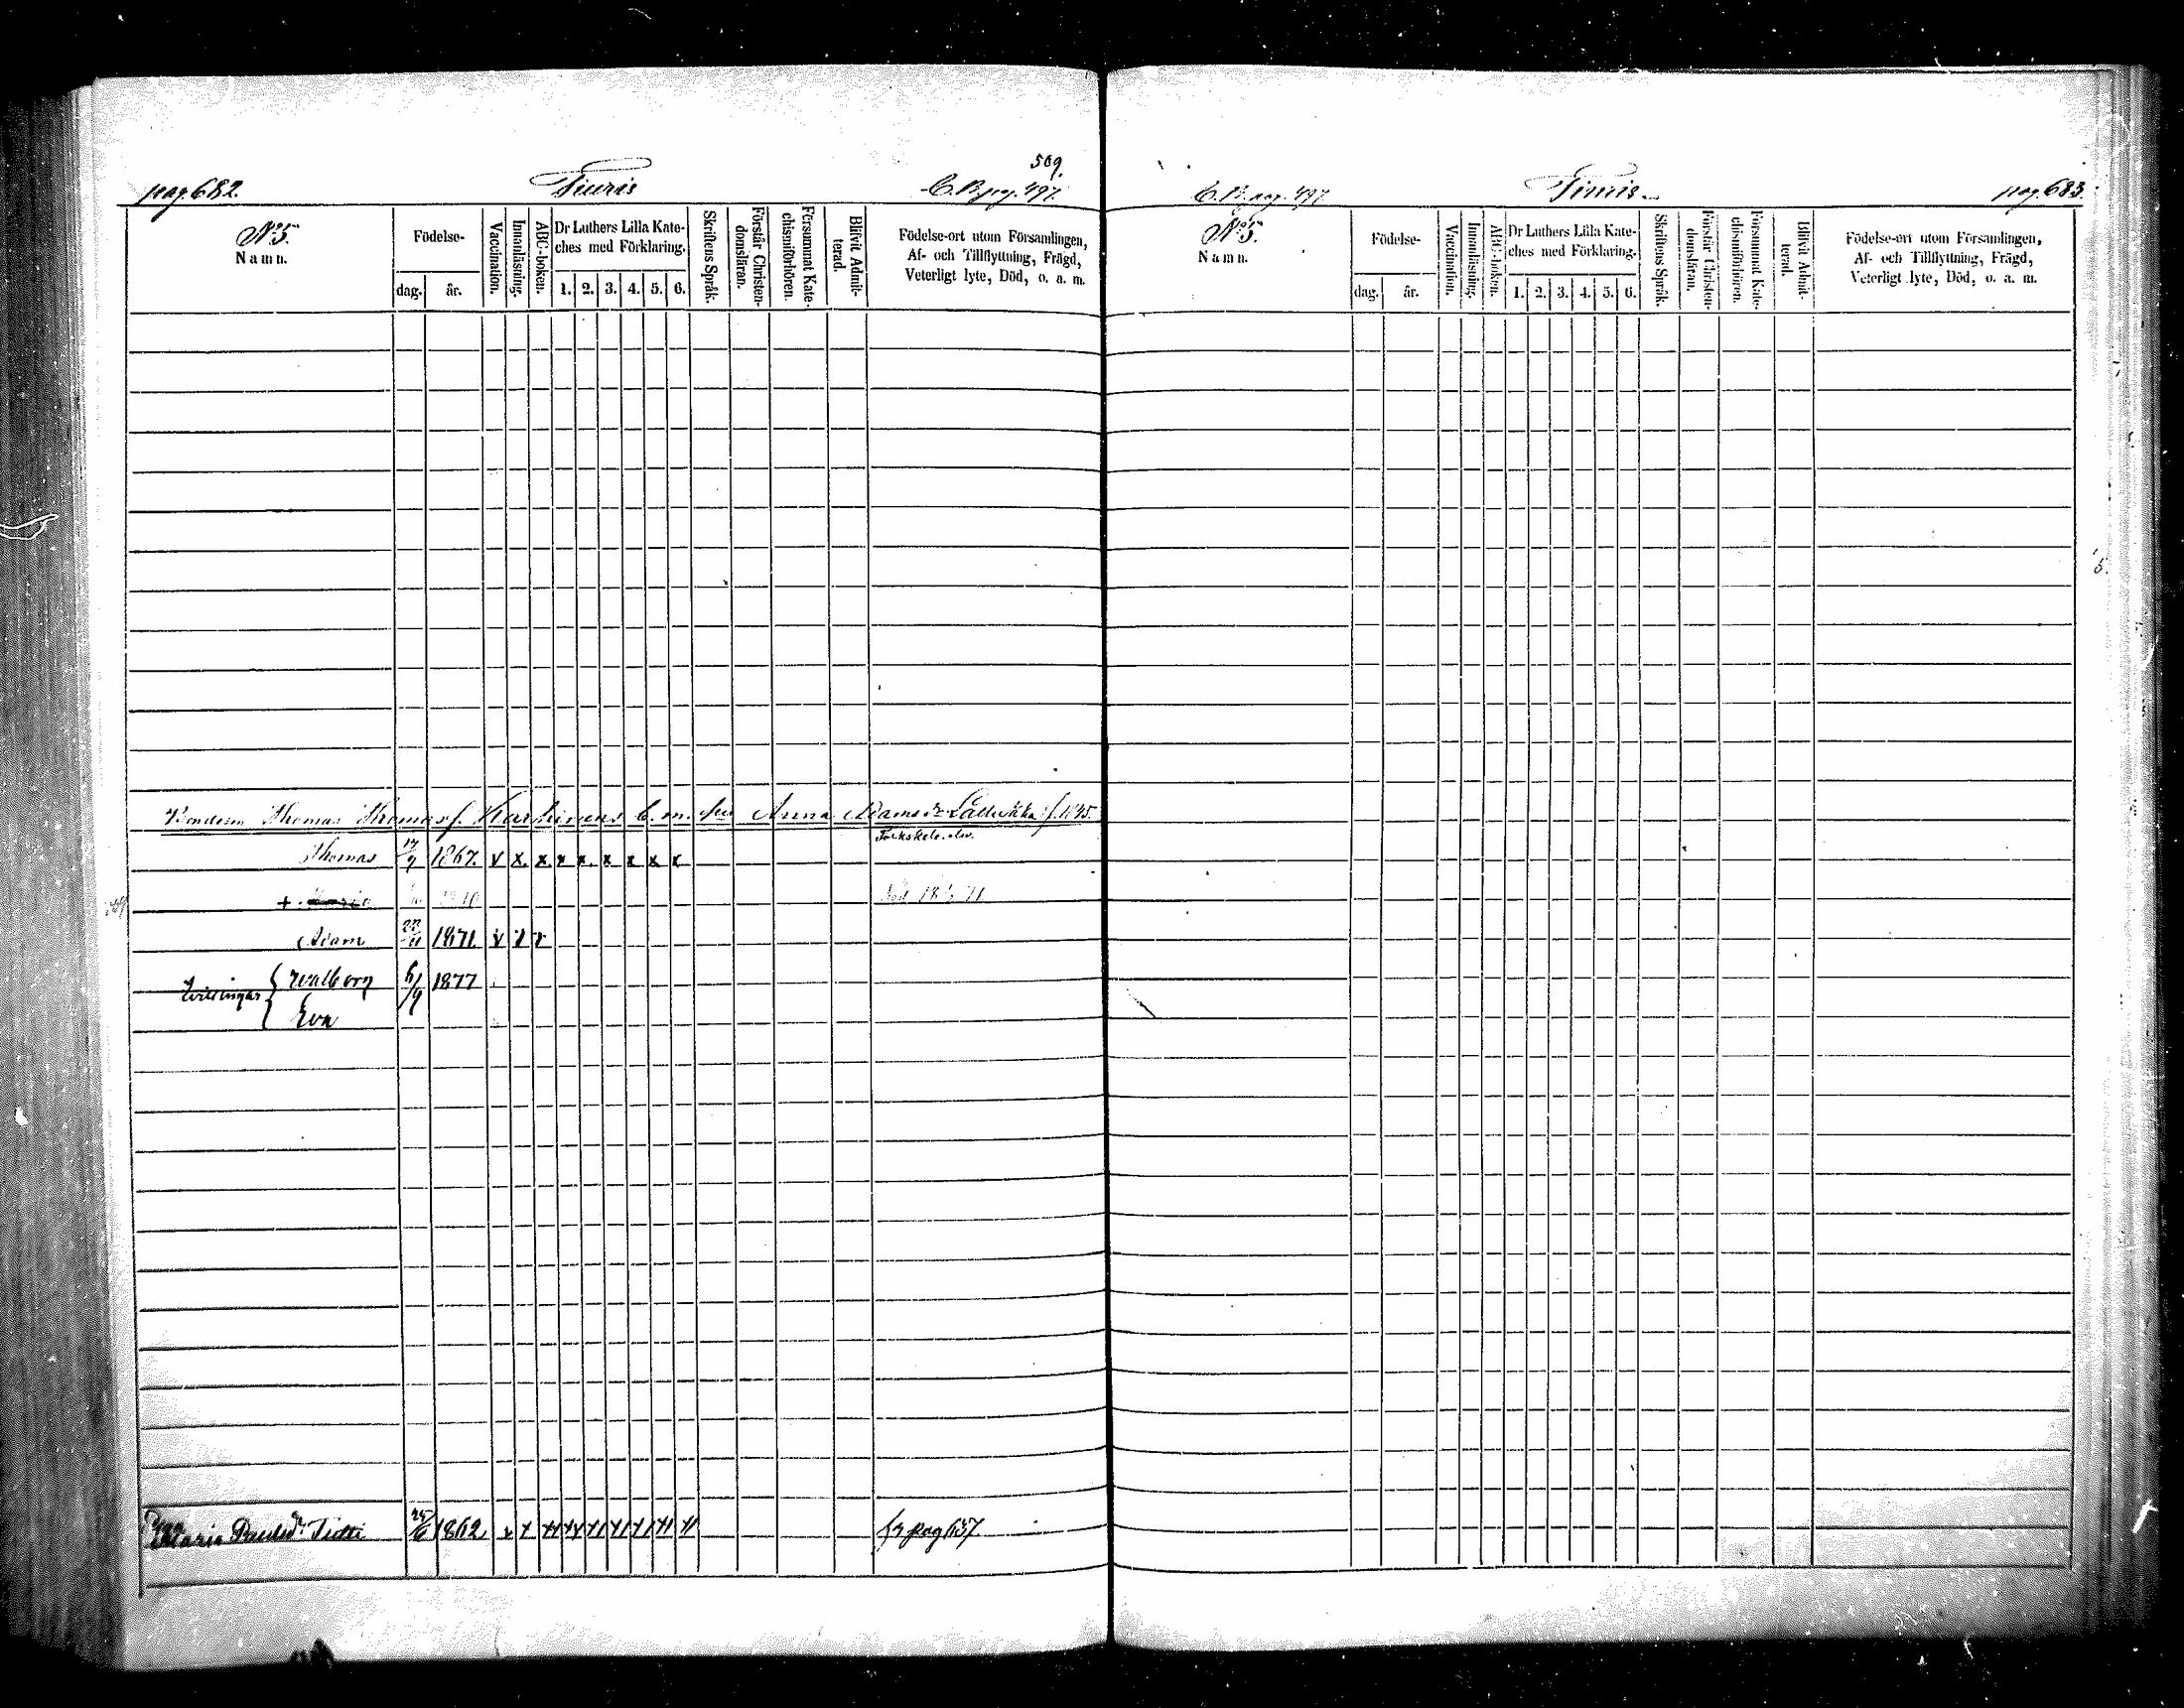 509.
pag. 682. Tiuris C.B. pag. 497.
N:o 5.
Namn.
Födelse-
dag. år.
Vaccination.
Innanläsning.
ABC-boken.
Dr Luthers Lilla Kate-
ches med Förklaring.
1. 2. 3. 4. 5. 6.
Skriftens Språk.
Förstår Christen-
domsläran.
Försummat Kate-
chismiförhören.
Blifvit Admit-
terad.
Födelse-ort utom Församlingen,
Af- och Tillflyttning, Frägd,
Veterligt lyte, Död, o. a. m.
Bonden Thomas Thomas f. Karhinens C.m. Anna Adamsdr Lallukka f. 1845.
Thomas 17/9 1867. v x. x. x x. x x x x
+ Maria
Adam 22/11 1871 v
Tvillingar { Walborg 6/9 1877
Eva
Maria Paulsd:r Tutti 1862 x x fr pag 657
C.B. pag. 497 Tiuris pag. 683.
N:o 5.
Namn.
Födelse-
dag. år.
Vaccination.
Innanläsning.
ABC-boken.
Dr Luthers Lilla Kate-
ches med Förklaring.
1. 2. 3. 4. 5. 6.
Skriftens Språk.
Förstår Christen-
domsläran.
Försummat Kate-
chismiförhören.
Blifvit Admit-
terad.
Födelse-ort utom Församlingen,
Af- och Tillflyttning, Frägd,
Veterligt lyte, Död, o. a. m.